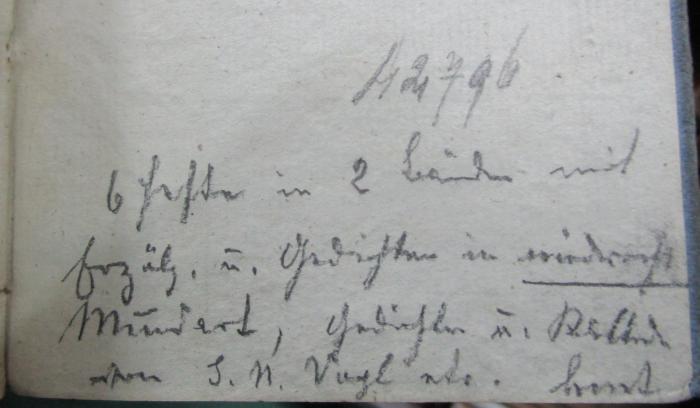 42796
6 Hefte in 2 Bänden mit
Erzälg. u. Gedichten in niederöst
Mundart, Gedichte u.
von J. N. Vogl etc.